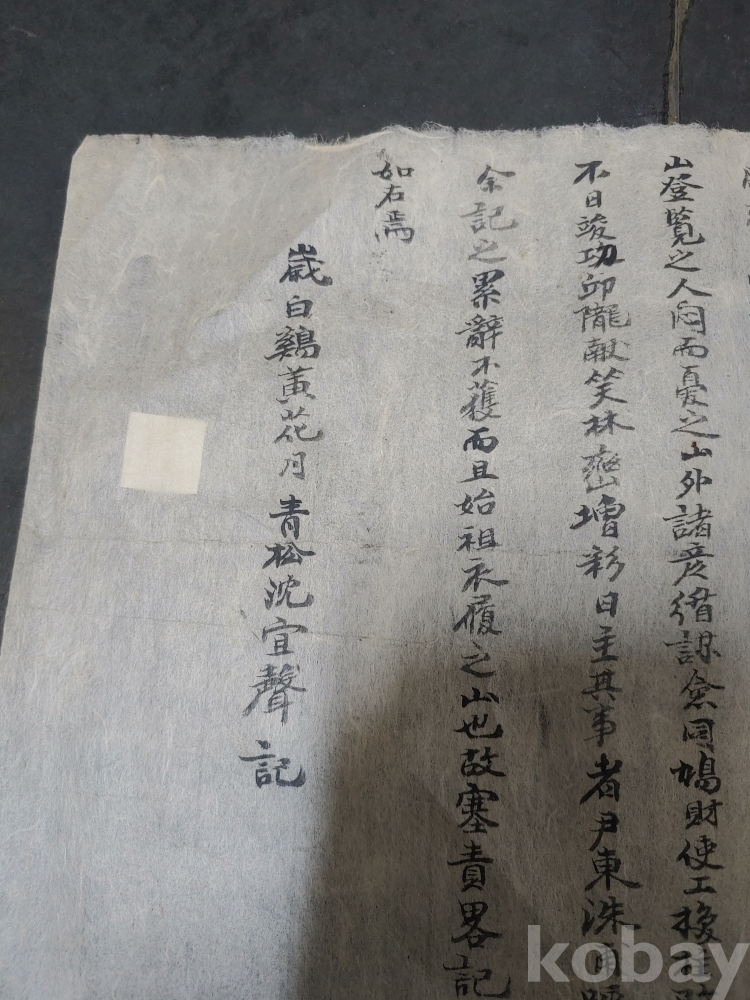 山登覽之人悶而憂之山外諸彦偕謀僉同鳩財使工
不日竣功邱隴献笑林巒增彩日主其事者尹東洙
余記之累辭不獲而且始祖衣履之山也故塞責畧記
如右焉
歲白鷄黃花月青松沈宜聲記
kobay